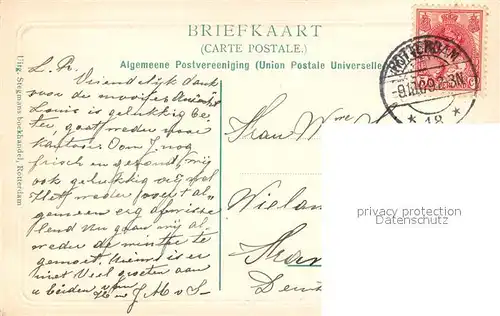 BRIEFKAART
(CARTE POSTALE.)
Algemeene Postvereeniging (Union Postale Universelle
Uitg. Stegmans boekhandel, Rotterdam
ROTTERDAM
* 18 *
L. P.
Vriendelijk dank
voor de mooije
Louis is gelukkig be-
ter, gaat weder naar
kantoor Oom J. nog
frisch en gezond, wij
ook gelukkig vrij wel
Het weder over 't al-
gemeen erg afwisse
lend Nu gaan wij al
weder de winter te
gemoet. Nieuws is er
niet Veel groeten aan
u beiden van
J. M v S-
Frau Wwe
Wielan
privacy protection
watermark